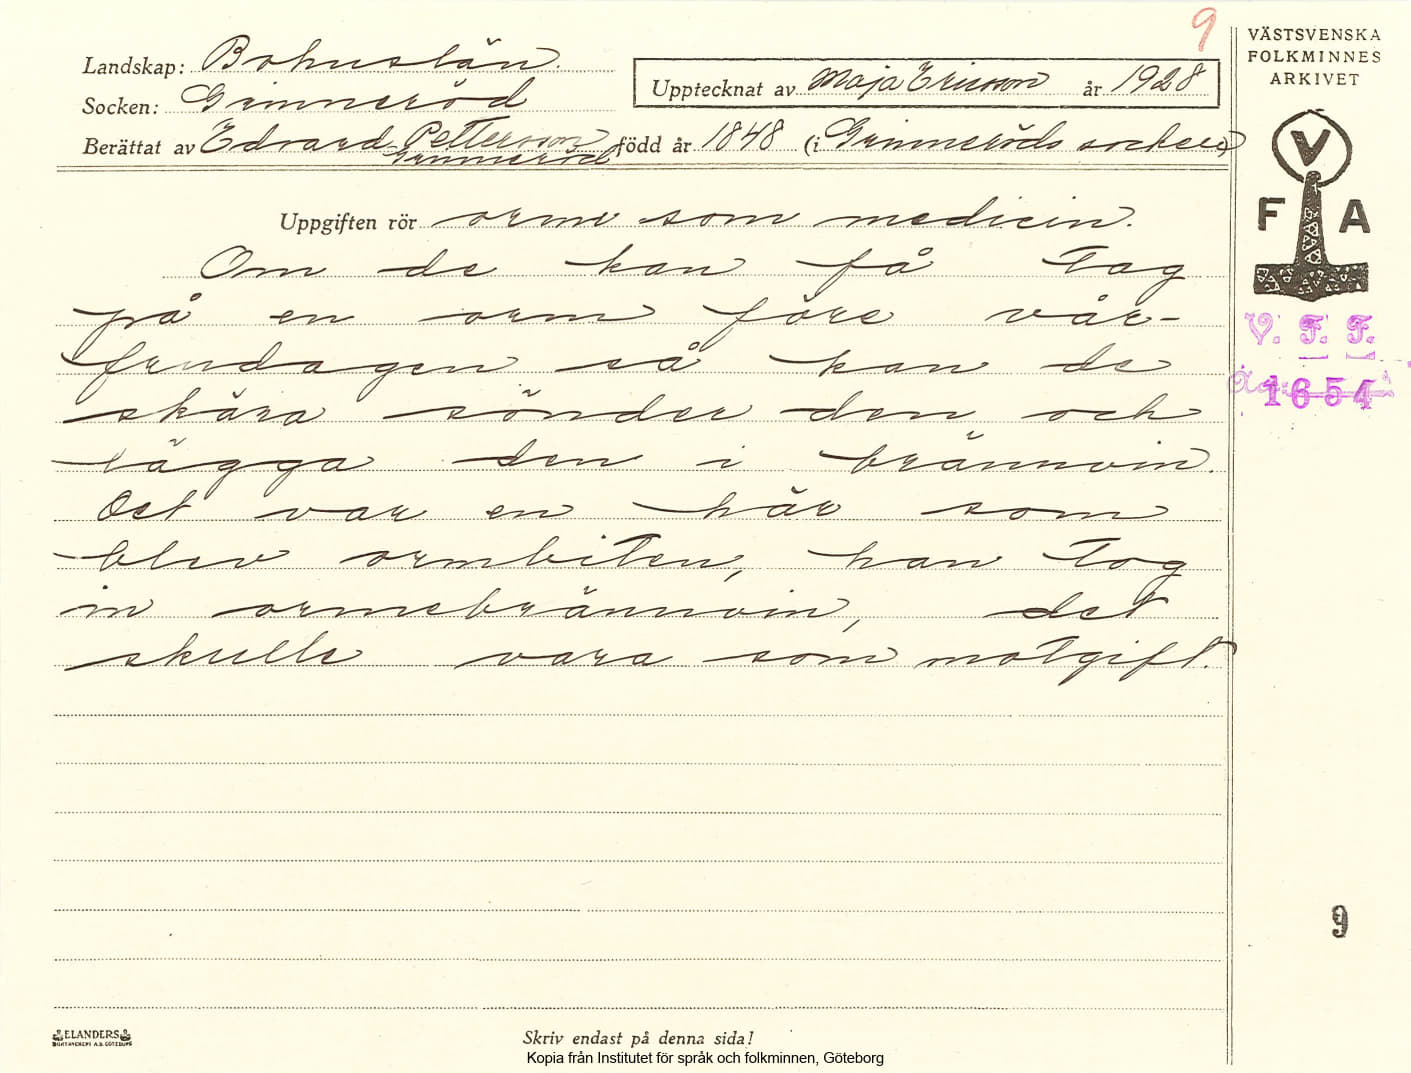 9
VÄSTSVENSKA
FOLKMINNES
ARKIVET
Landskap: Bohuslän.
Socken: Grinneröd
Upptecknat av Maja Ericson år 1928
Berättat av Edvard Petterson född år 1848 (i Grinneröds socken)
Grinneröd
V
F A
Uppgiften rör orm som medicin.
Om de kan få tag
på en orm före vår-
frudagen så kan de
skära sönder den och
lägga den i brännvin.
Det var en här som
blev ormbiten, han tog
in ormebrännvin, det
skulle vara som motgift.
V. F. F.
1654
9
ELANDERS
BOKTRYCKERI A.B. GÖTEBORG
Skriv endast på denna sida!
Kopia från Institutet för språk och folkminnen, Göteborg